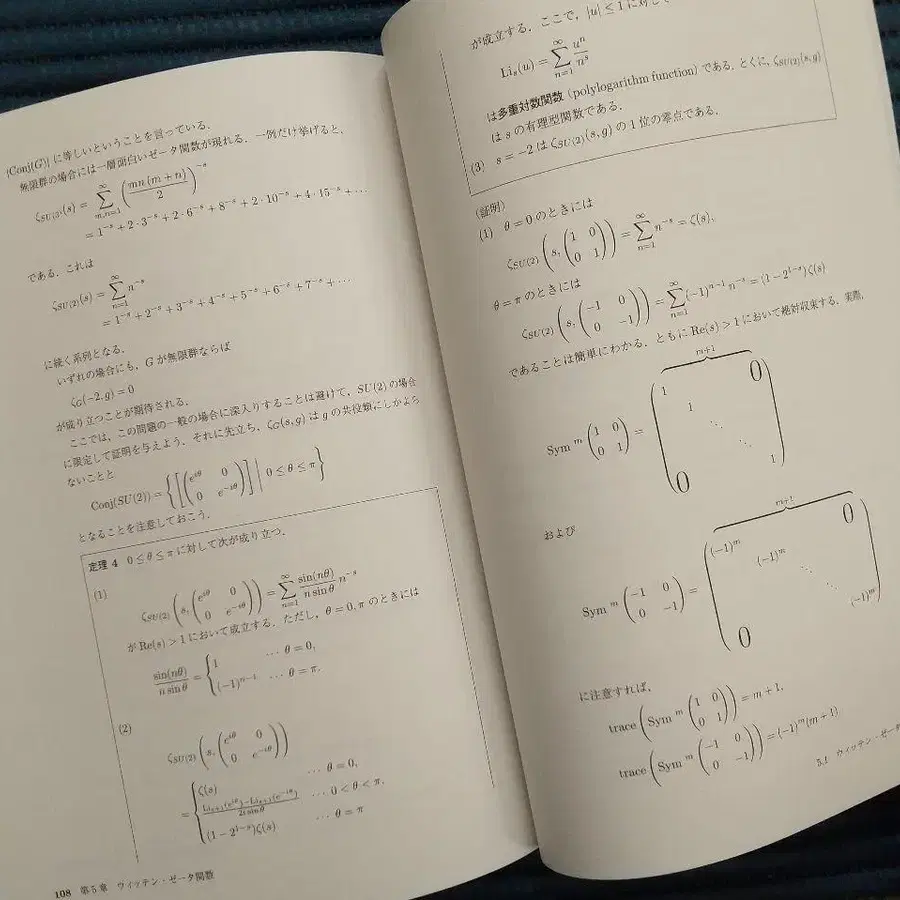 |Conj(G)| に等しいということを言っている.
無限群の場合には一層面白いゼータ関数が現れる. 一例だけ挙げると,
ζ_{SU(3)}(s) = ∑_{m,n=1}^{∞} (mn(m+n)/2)^{-s}
= 1^{-s} + 2·3^{-s} + 2·6^{-s} + 8^{-s} + 2·10^{-s} + 4·15^{-s} + ⋯
である. これは
ζ_{SU(2)}(s) = ∑_{n=1}^{∞} n^{-s}
= 1^{-s} + 2^{-s} + 3^{-s} + 4^{-s} + 5^{-s} + 6^{-s} + 7^{-s} + ⋯
に続く系列となる.
いずれの場合にも, G が無限群ならば
ζ_G(-2, g) = 0
が成り立つことが期待される.
ここでは, この問題の一般の場合に深入りすることは避けて, SU(2) の場合
に限定して証明を与えよう. それに先立ち, ζ_G(s, g) は g の共役類にしかよら
ないことと
Conj(SU(2)) = { [ ( e^{iθ} 0 ; 0 e^{-iθ} ) ] | 0 ≤ θ ≤ π }
となることを注意しておこう.
定理 4 0 ≤ θ ≤ π に対して次が成り立つ.
(1)
ζ_{SU(2)} ( s, ( e^{iθ} 0 ; 0 e^{-iθ} ) ) = ∑_{n=1}^{∞} sin(nθ)/(n sin θ) n^{-s}
が Re(s) > 1 において成立する. ただし, θ = 0, π のときには
sin(nθ)/(n sin θ) = { 1 ⋯ θ = 0,
(-1)^{n-1} ⋯ θ = π.
(2)
ζ_{SU(2)} ( s, ( e^{iθ} 0 ; 0 e^{-iθ} ) )
= { ζ(s) ⋯ θ = 0,
(Li_{s+1}(e^{iθ}) - Li_{s+1}(e^{-iθ}))/(2i sin θ) ⋯ 0 < θ < π,
(1 - 2^{1-s})ζ(s) ⋯ θ = π
108 第 5 章 ウィッテン・ゼータ関数
が成立する. ここで, |u| ≤ 1 に対して
Li_s(u) = ∑_{n=1}^{∞} u^n/n^s
は多重対数関数 (polylogarithm function) である. とくに, ζ_{SU(2)}(s, g)
は s の有理型関数である.
(3) s = -2 は ζ_{SU(2)}(s, g) の 1 位の零点である.
(証明)
(1) θ = 0 のときには
ζ_{SU(2)} ( s, ( 1 0 ; 0 1 ) ) = ∑_{n=1}^{∞} n^{-s} = ζ(s),
θ = π のときには
ζ_{SU(2)} ( s, ( -1 0 ; 0 -1 ) ) = ∑_{n=1}^{∞} (-1)^{n-1} n^{-s} = (1 - 2^{1-s})ζ(s)
であることは簡単にわかる. ともに Re(s) > 1 において絶対収束する. 実際,
m+1
Sym^m ( 1 0 ; 0 1 ) = ( 1 0 ; 1 ; ⋱ ; 0 1 )
および
m+1
Sym^m ( -1 0 ; 0 -1 ) = ( (-1)^m 0 ; (-1)^m ; ⋱ ; 0 (-1)^m )
に注意すれば,
trace ( Sym^m ( 1 0 ; 0 1 ) ) = m + 1,
trace ( Sym^m ( -1 0 ; 0 -1 ) ) = (-1)^m (m + 1)
5.1 ウィッテン・ゼータ